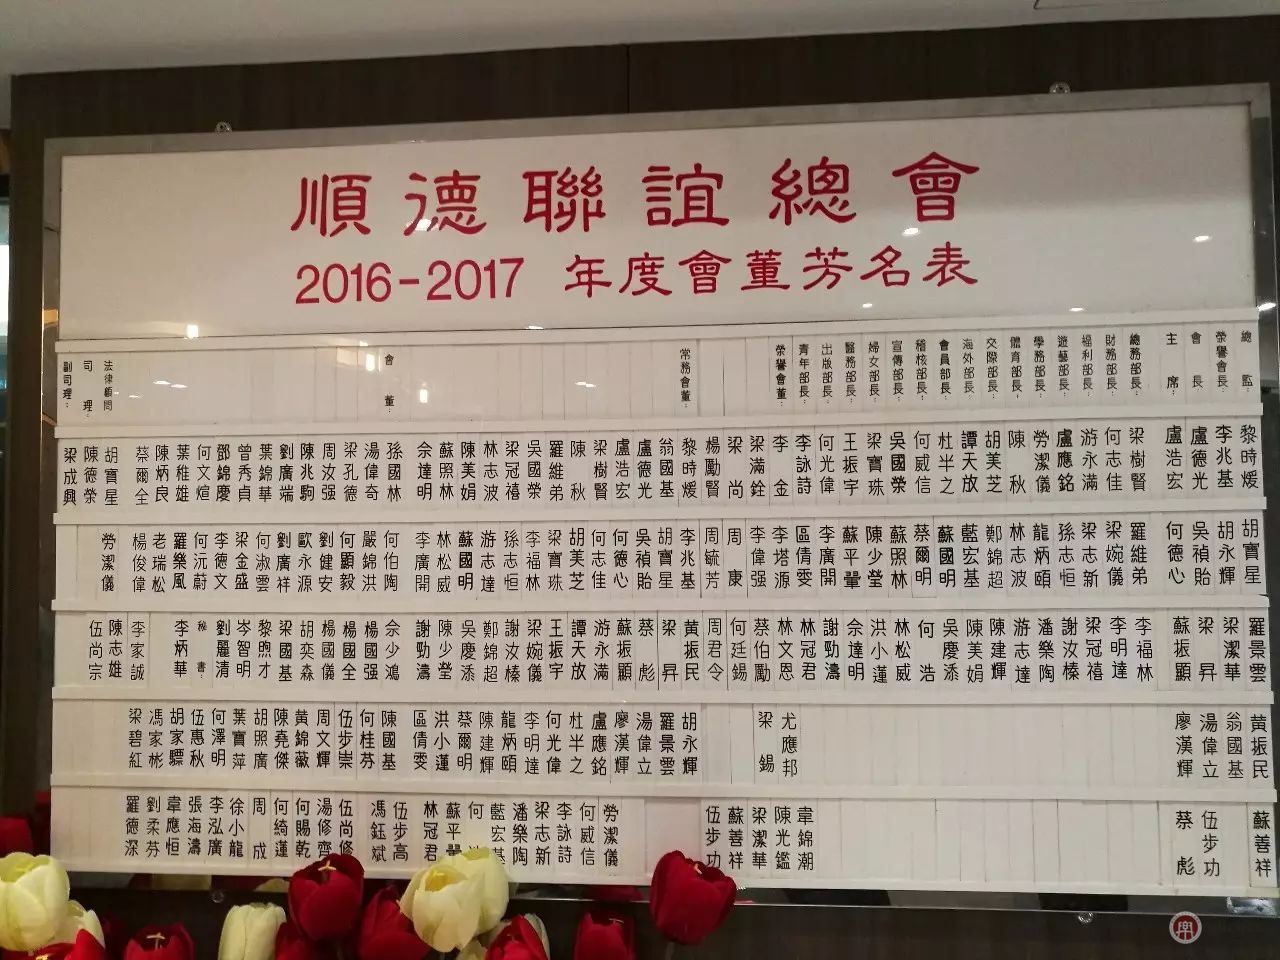 順德聯誼總會
2016-2017 年度會董芳名表
總監: 榮譽會長: 會長 主席: 總務部長: 財務部長: 福利部長: 遊藝部長: 學務部長: 體育部長: 交際部長: 海外部長: 會員部長: 稽核部長: 宣傳部長: 婦女部長: 醫務部長: 出版部長: 青年部長: 榮譽會董: 常務會董: 會董: 法律顧問 司理: 副司理:
黎時煖 李兆基 盧德光 盧浩宏 梁樹賢 何志佳 游永滿 盧應銘 勞潔儀 陳秋 胡美芝 譚天放 杜半之 何威信 吳國榮 梁寶珠 王振宇 何光偉 李詠詩 李金 梁滿銓 梁尚 楊勵賢 黎時煖 翁國基 盧德光 盧浩宏 梁樹賢 陳秋 羅維弟 吳國榮 梁冠禧 林志波 陳美娟 蘇照林 佘達明 孫國林 湯偉奇 梁孔德 周汝强 陳兆駒 劉廣端 葉錦華 曾秀貞 鄧錦慶 何文煊 葉稚雄 陳炳良 蔡爾全 胡寶星 陳德榮 梁成興
胡寶星 胡永輝 吳禎貽 何德心 羅維弟 梁婉儀 梁志新 孫志恒 龍炳頤 林志波 鄭錦超 藍宏基 蘇國明 蔡爾明 蘇照林 陳少瑩 蘇平 李廣開 區倩雯 李塔源 李偉强 周康 周毓芳 李兆基 胡寶星 吳禎貽 何德心 何志佳 胡美芝 梁寶珠 李福林 孫志恒 游志達 蘇國明 林松威 李廣開 何伯陶 嚴錦洪 何顯毅 劉健安 歐永源 劉廣祥 何淑雲 梁金盛 李德文 何沅蔚 羅樂風 老瑞松 楊俊偉 勞潔儀
羅景雲 梁潔華 梁昇 蘇振顯 李福林 李明達 梁冠禧 謝汝榛 潘樂陶 游志達 陳建輝 陳美娟 吳慶添 何浩 林松威 洪小蓮 佘達明 謝勁濤 林冠君 林文恩 蔡伯勵 何廷錫 周君令 黃振民 梁昇 蔡彪 蘇振顯 游永滿 譚天放 王振宇 梁婉儀 謝汝榛 鄭錦超 吳慶添 陳少瑩 謝勁濤 佘少鴻 楊國强 楊國全 楊國儀 胡奕森 梁國基 黎煦才 岑智明 羅麗清 秘書: 李炳華 李家誠 陳志雄 伍尚宗
黃振民 翁國基 湯偉立 廖漢輝 尤應邦 梁錫 胡永輝 羅景雲 湯偉立 廖漢輝 盧應銘 杜半之 何光偉 李明達 龍炳頤 陳建輝 蔡爾明 洪小蓮 區倩雯 陳國基 何桂芬 伍步崇 周文輝 黃錦薇 陳堯傑 胡照廣 葉寶萍 何澤明 伍惠秋 胡家驃 馮家彬 梁碧紅
蘇善祥 伍步功 蔡彪 韋錦潮 陳光鑑 梁潔華 蘇善祥 伍步功 勞潔儀 何威信 李詠詩 梁志新 潘樂陶 藍宏基 何 蘇平 林冠君 伍步高 馮鈺斌 伍尚修 湯修齊 何賜乾 何綺蓮 周成 徐小龍 李泓廣 張海濤 韋應恒 劉柔芬 羅德深